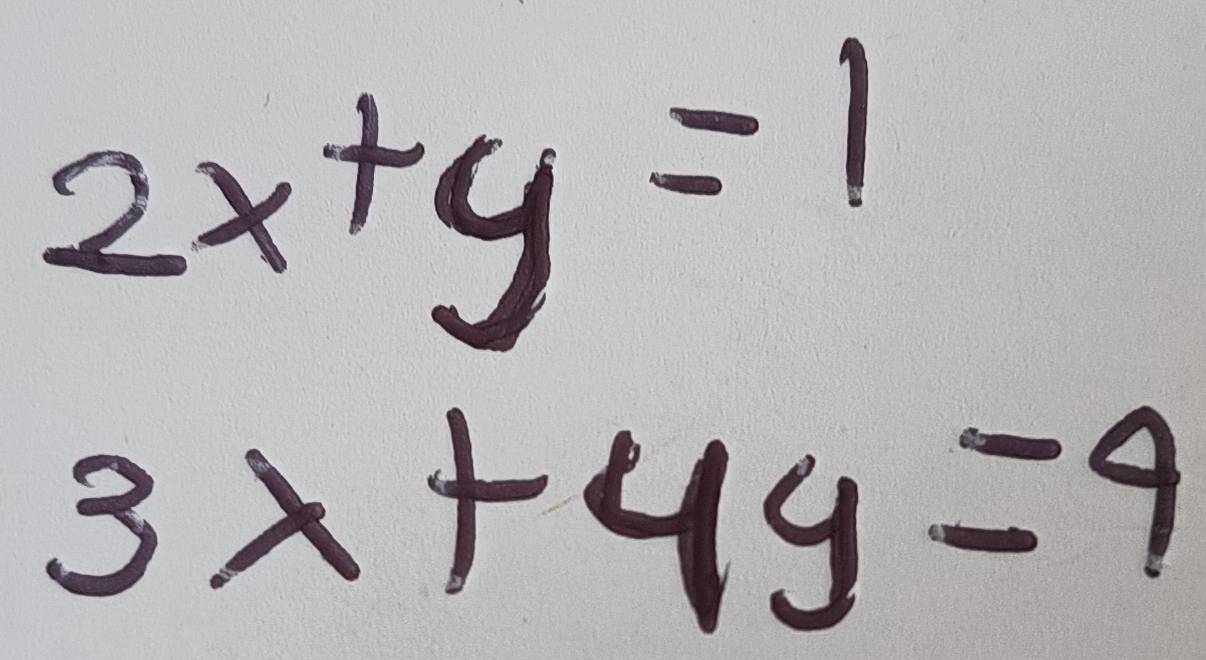 2x + y = 1
3x + 4y = 9